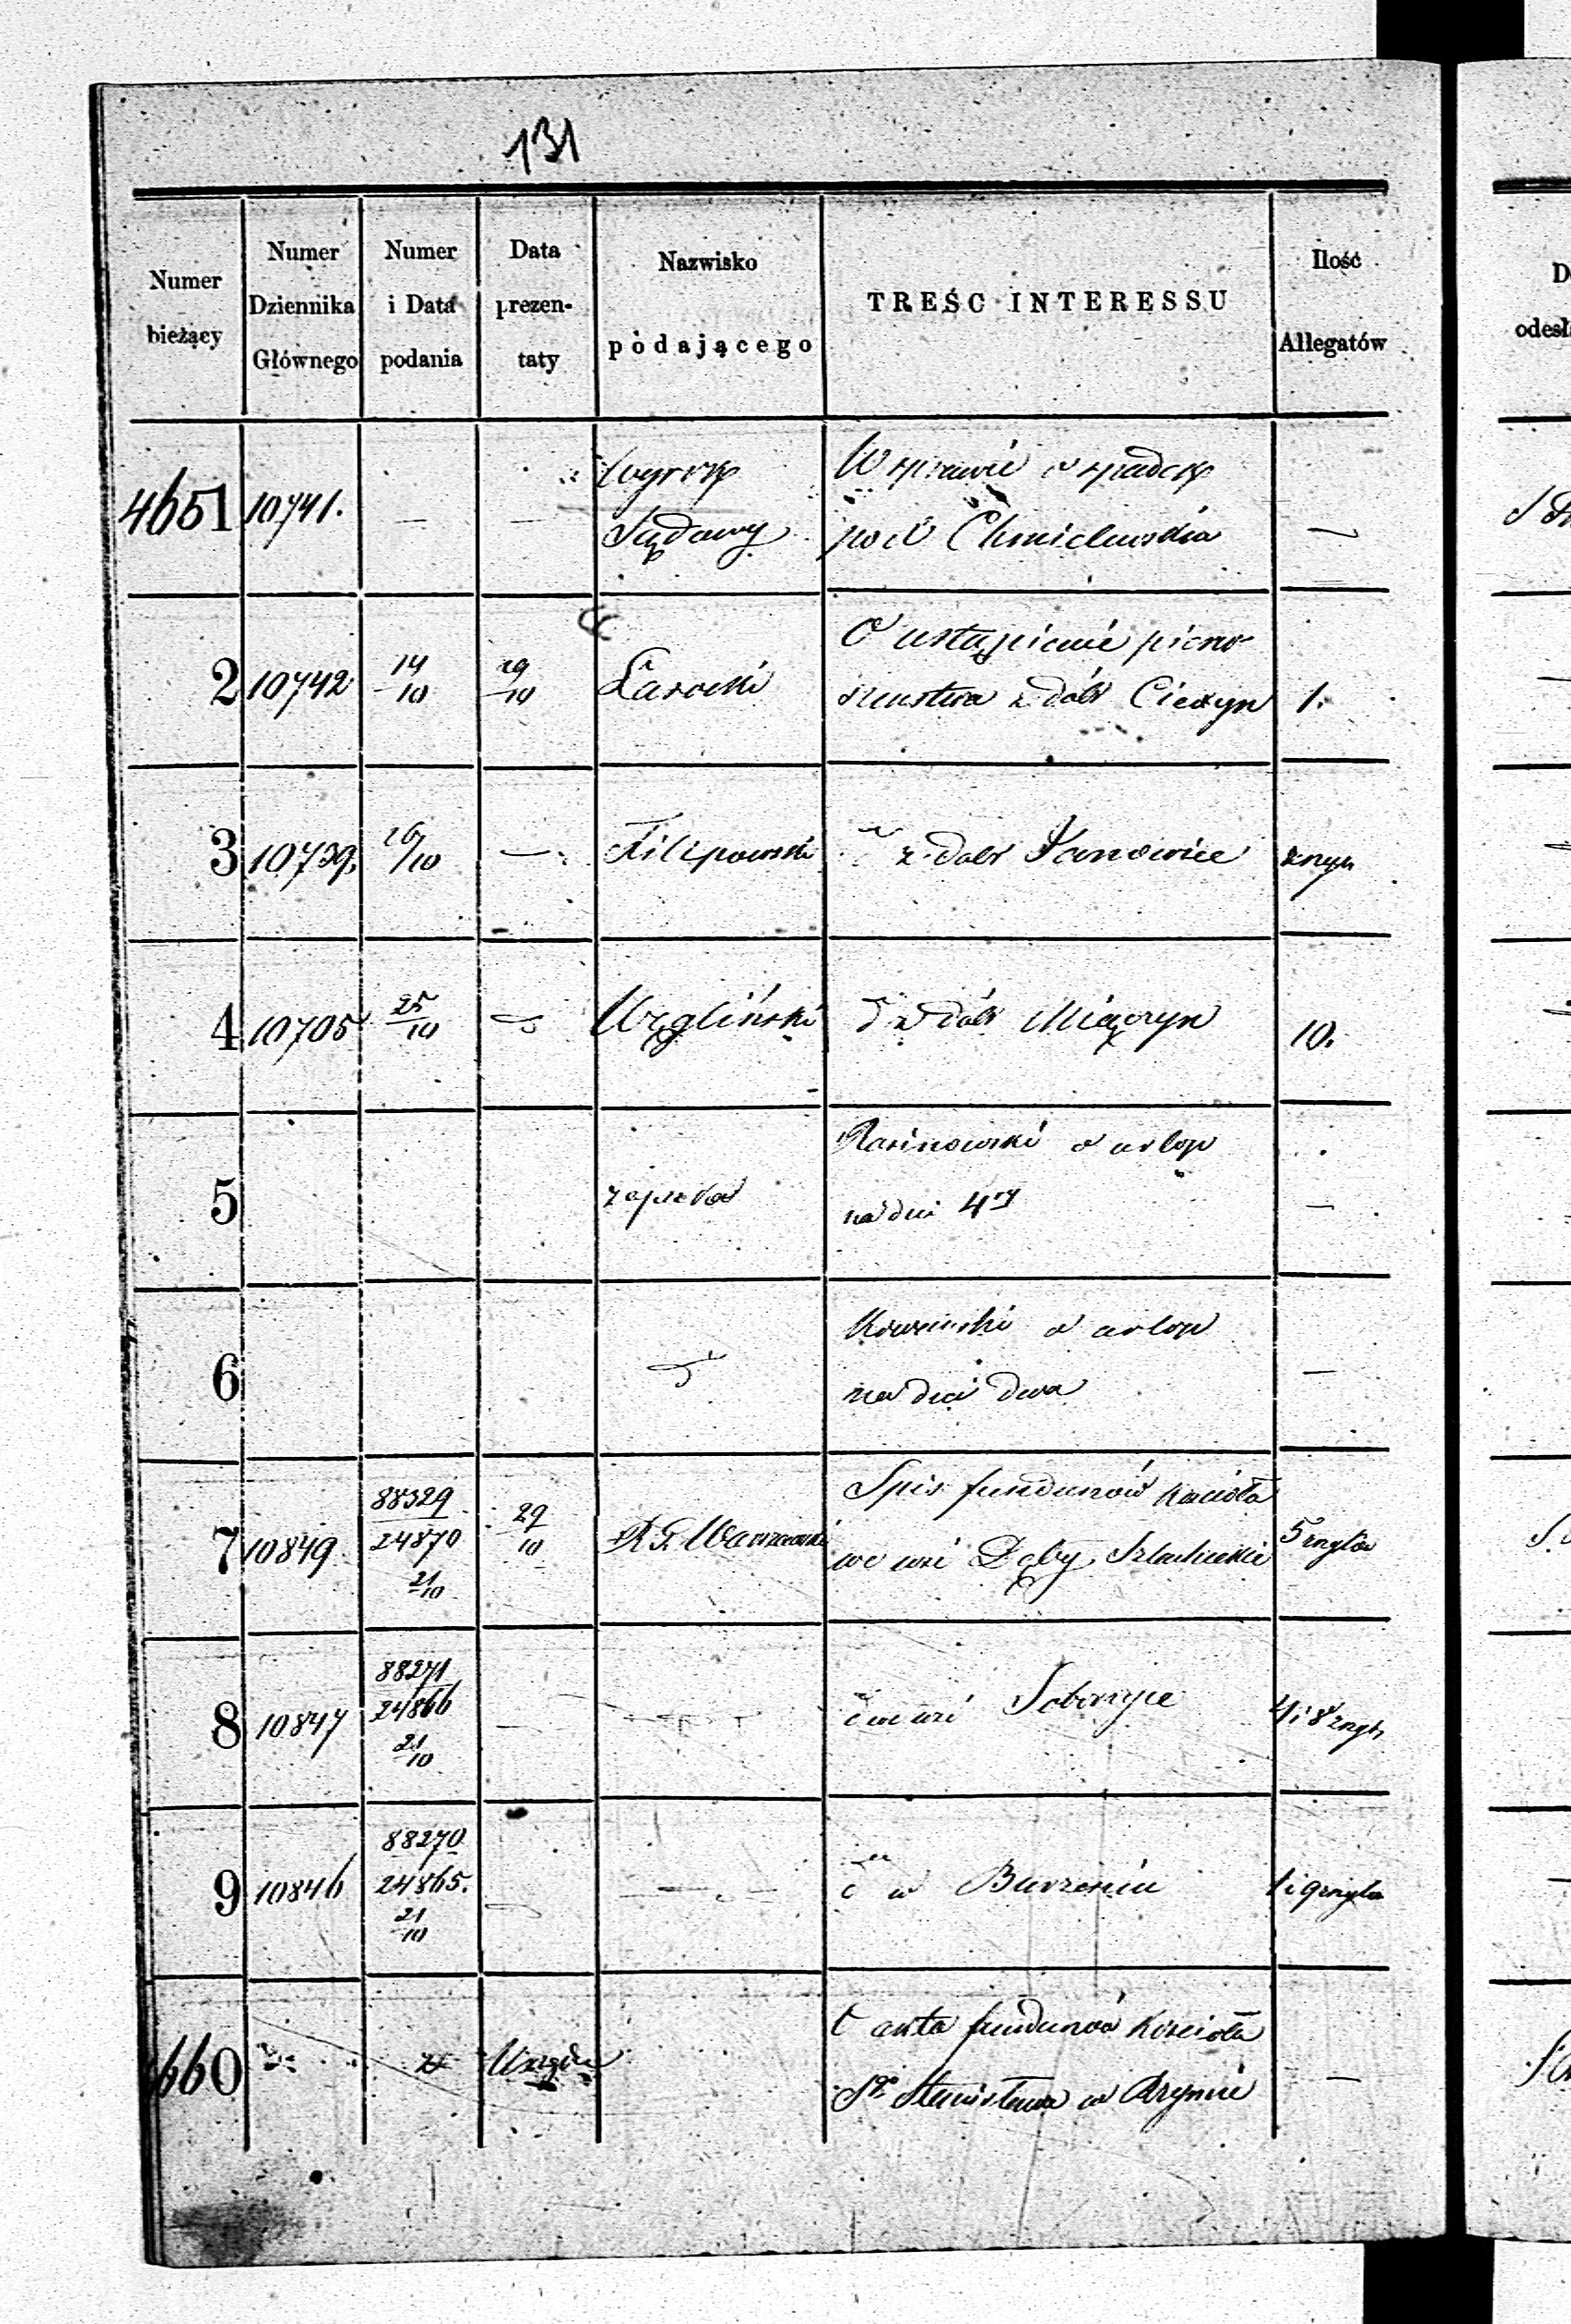 131
Numer bieżący
Numer Dziennika Głównego
Numer i Data podania
Data prezentaty
Nazwisko podającego
TREŚĆ INTERESSU
Ilość Allegatów
4651 10741. — — Wyrok W sprawie o spadek
Sądowy pod Chmielewskia —
2 10742 14/10 29/10 Lasocki O ustąpienie pierw-
szeństwa z dóbr Ciexyn 1.
3 10739 26/10 — Filipowski z dobr Janowice
4 10705 25/10 Węgliński d z dóbr Miączyn 10.
5 Rasinowski o urlop
na dni 4ry —
6 o urlop
na dni dwa —
7 10849 88329 24870 21/10 29/10 R. G. Warszawski Spis funduszów Kościoła
we wsi Dęby Szlacheckie 5
8 10847 88271 24866 21/10 — d we wsi Sobonice 4 i 8
9 10846 88270 24865. 21/10 — d w Burzeninie 1 i 9
660 akta funduszów Kościoła
Sgo Stanisława w Rzymie —